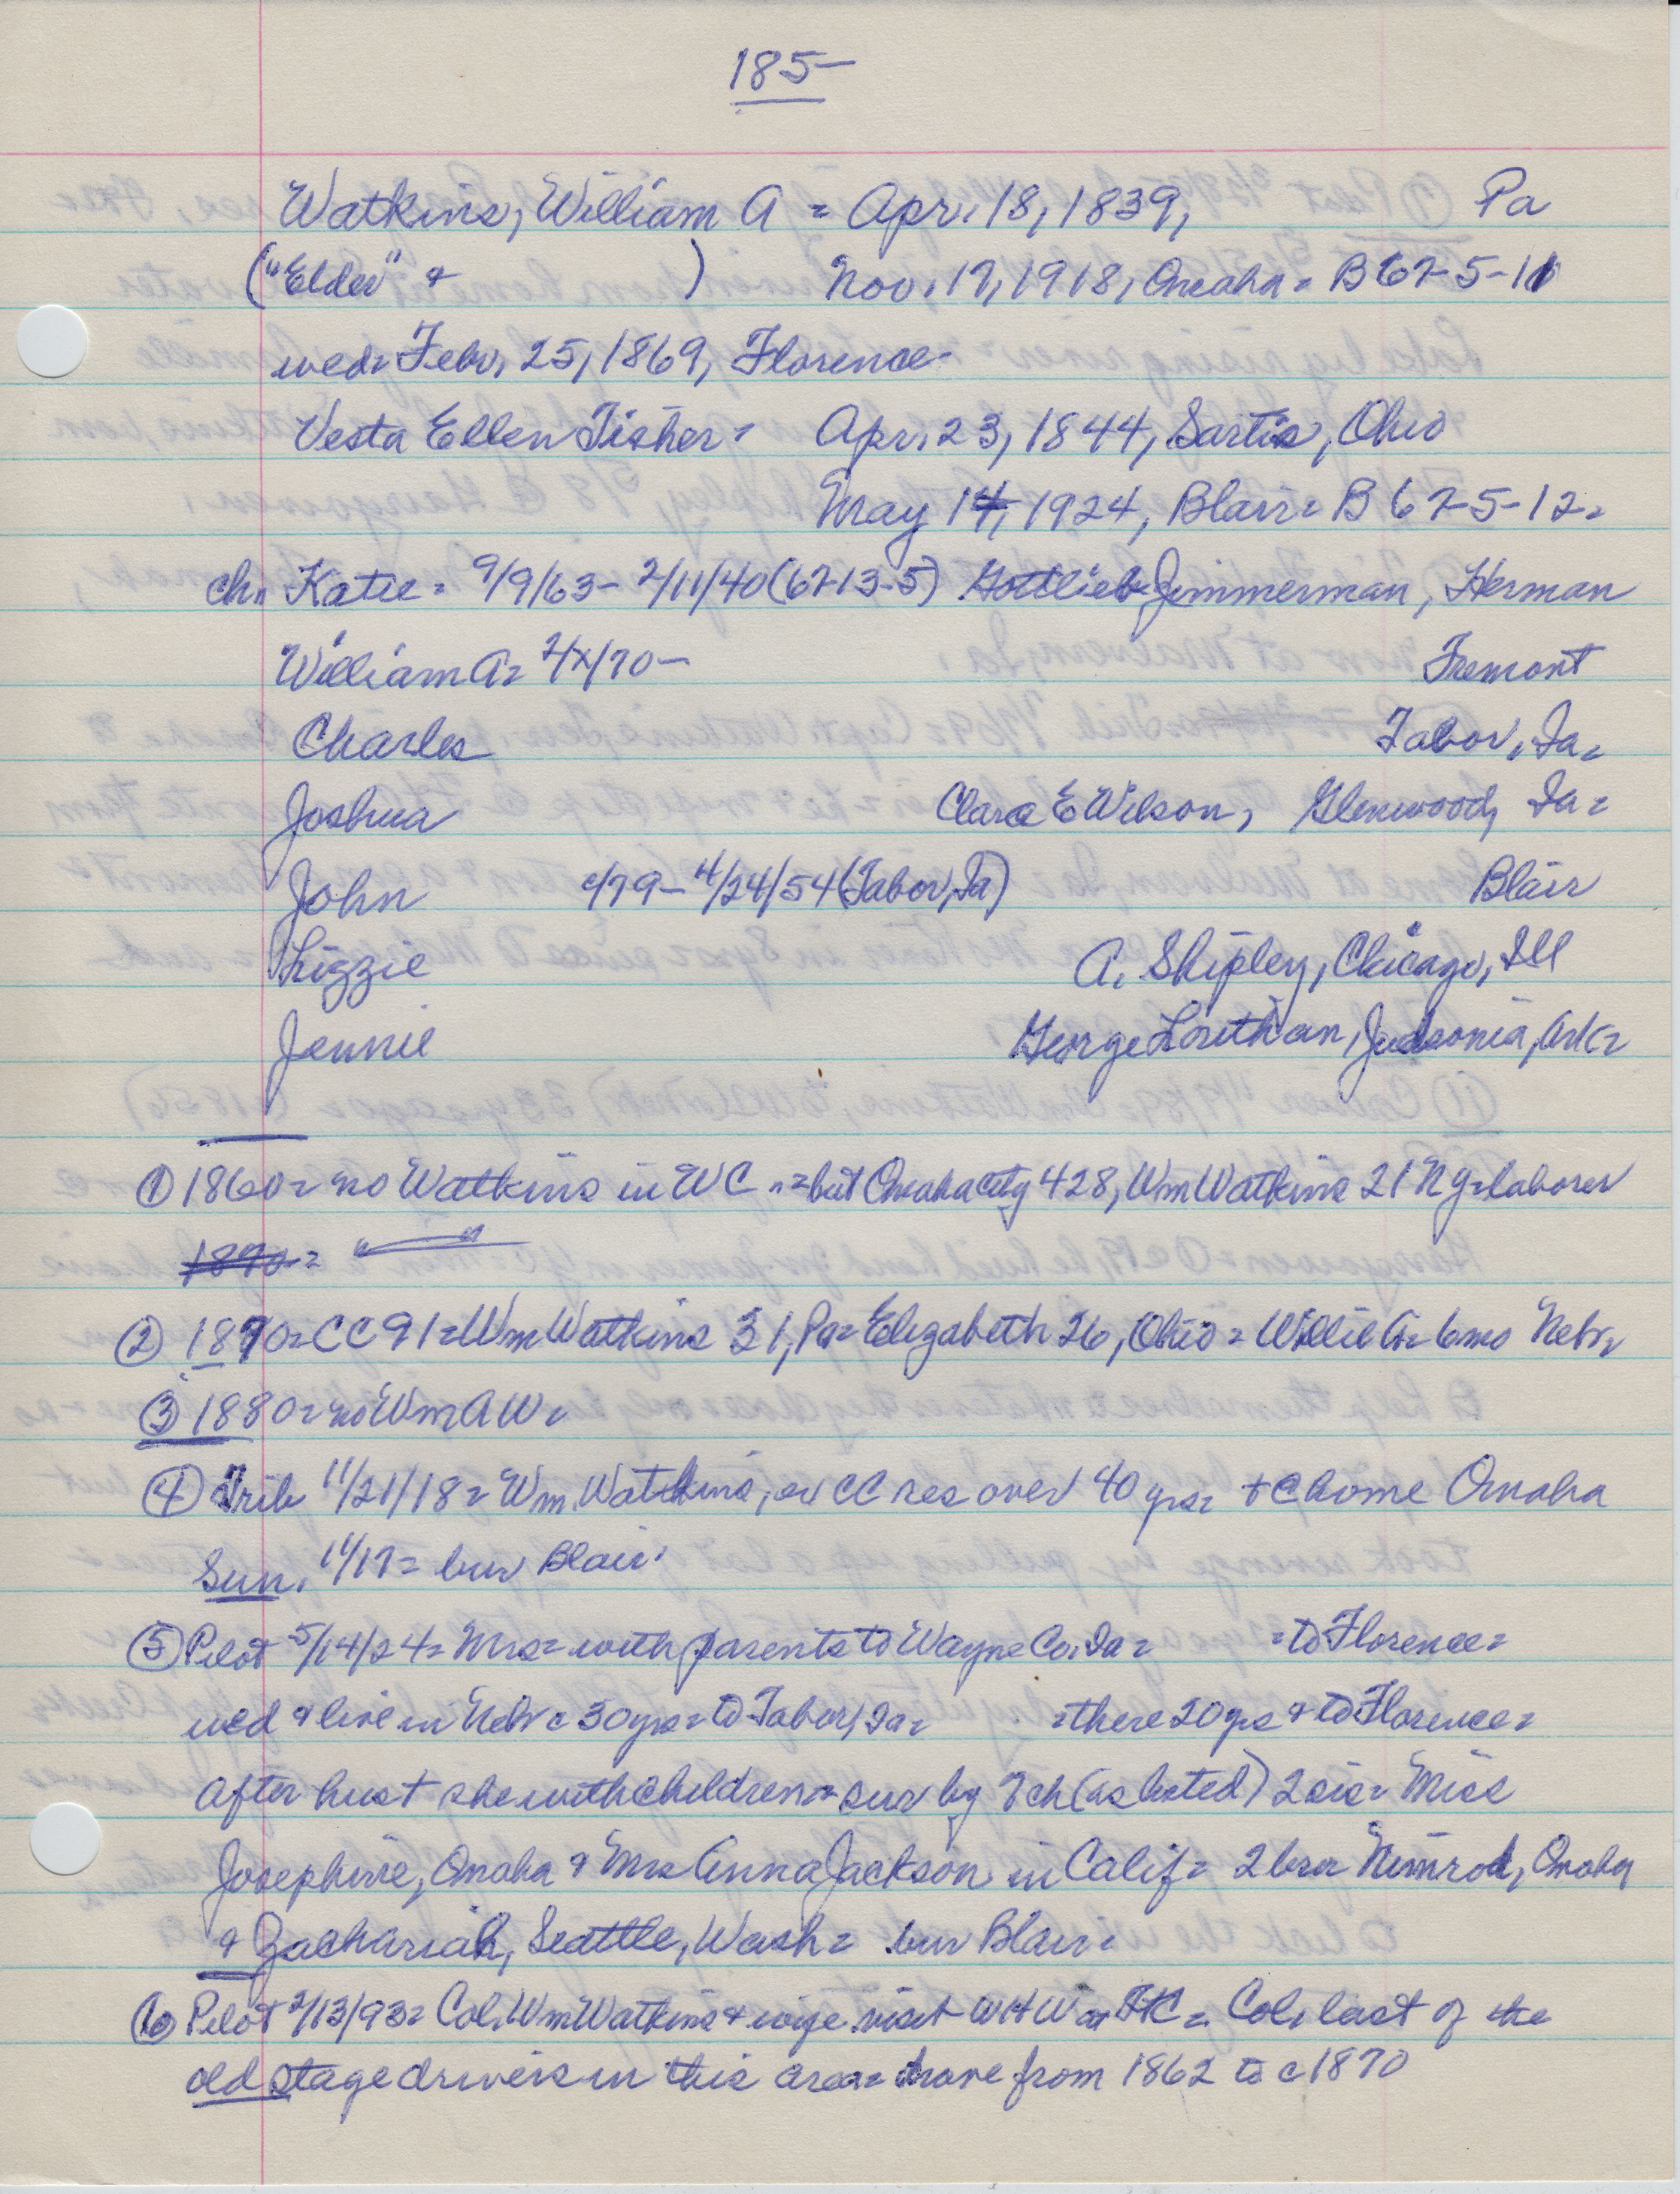 185-
Watkins, William A = Apr. 18, 1839, Pa
("Elder" & ) Nov. 17, 1918, Omaha = B 67-5-11
wed= Febr. 25, 1869, Florence-
Vesta Ellen Fisher = Apr. 23, 1844, Sartis, Ohio
May 14, 1924, Blair = B 67-5-12.
ch. Katie = 9/9/63 - 2/11/40 (67-13-5) Gottlieb Zimmerman, Herman
William A = 2/x/70 - Fremont
Charles Tabor, Ia=
Joshua Clara E Wilson, Glenwood, Ia =
John c/79 - 4/24/54 (Tabor, Ia) Blair
Lizzie A. Shipley, Chicago, Ill
Jennie George Louthan, Judsonia, Ark=
① 1860= no Watkins in WC = but Omaha city 428, Wm Watkins 21 NY=laborer
1870 = " "
② 1870= CC 91= Wm Watkins 31, Pa= Elizabeth 26, Ohio = Willie A= 6mo Nebr=
③ 1880= no Wm A W=
④ Trib 11/21/18= Wm. Watkins, ex CC res over 40 yrs= + @ home Omaha
Sun. 11/17= bur Blair.
⑤ Pilot 5/14/24= Mrs= with parents to Wayne Co. Ia= =to Florence=
wed & live in Nebr c 30 yrs= to Tabor, Ia= =there 20 yrs & to Florence=
After hus+ she with children= sur by 7 ch (as listed) 2 sis= Miss
Josephine, Omaha & Mrs Anna Jackson in Calif= 2 bro= Nimrod, Omaha
& Zachariah, Seattle, Wash= bur Blair.
⑥ Pilot 2/13/93= Col. Wm Watkins & wife visit WHW at FtC= Col. last of the
old stage drivers in this area= drove from 1862 to c 1870